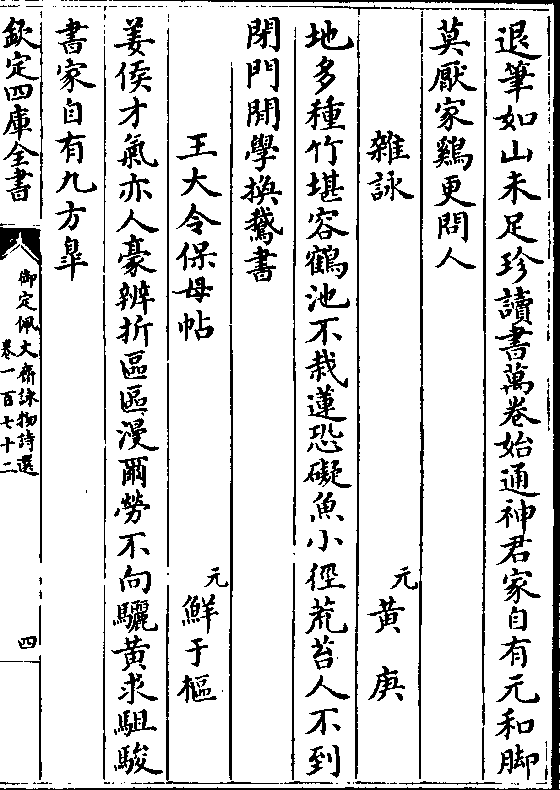 退筆如山未足珍讀書萬卷始通神君家自有元和脚
莫厭家鷄更問人
雜詠
元
黄庚
地多種竹堪容鶴池不栽蓮恐礙魚小徑荒苔人不到
閉門閒學換鵞書
王大令保母帖
元
鮮于樞
姜侯才氣亦人豪辨折區區漫爾勞不向驪黄求駔駿
書家自有九方臯
欽定四庫全書
御定佩文齋詠物詩選
卷一百七十二
四